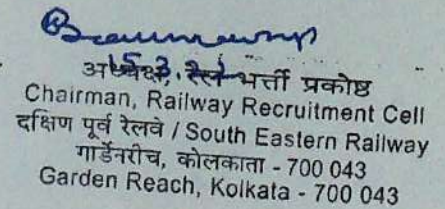 15.3.21
अध्यक्ष, रेल भर्ती प्रकोष्ठ
Chairman, Railway Recruitment Cell
दक्षिण पूर्व रेलवे / South Eastern Railway
गार्डेनरीच, कोलकाता - 700 043
Garden Reach, Kolkata - 700 043